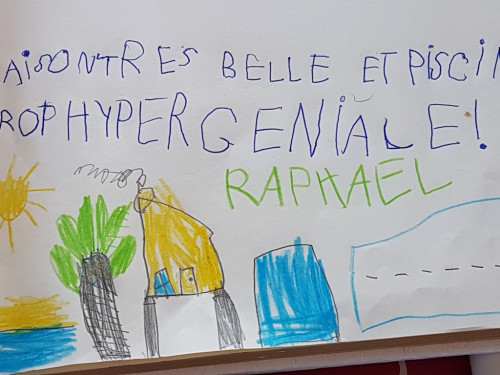 AISON TRES BELLE ET PISCIN
ROP HYPER GENIALE!
RAPHAEL